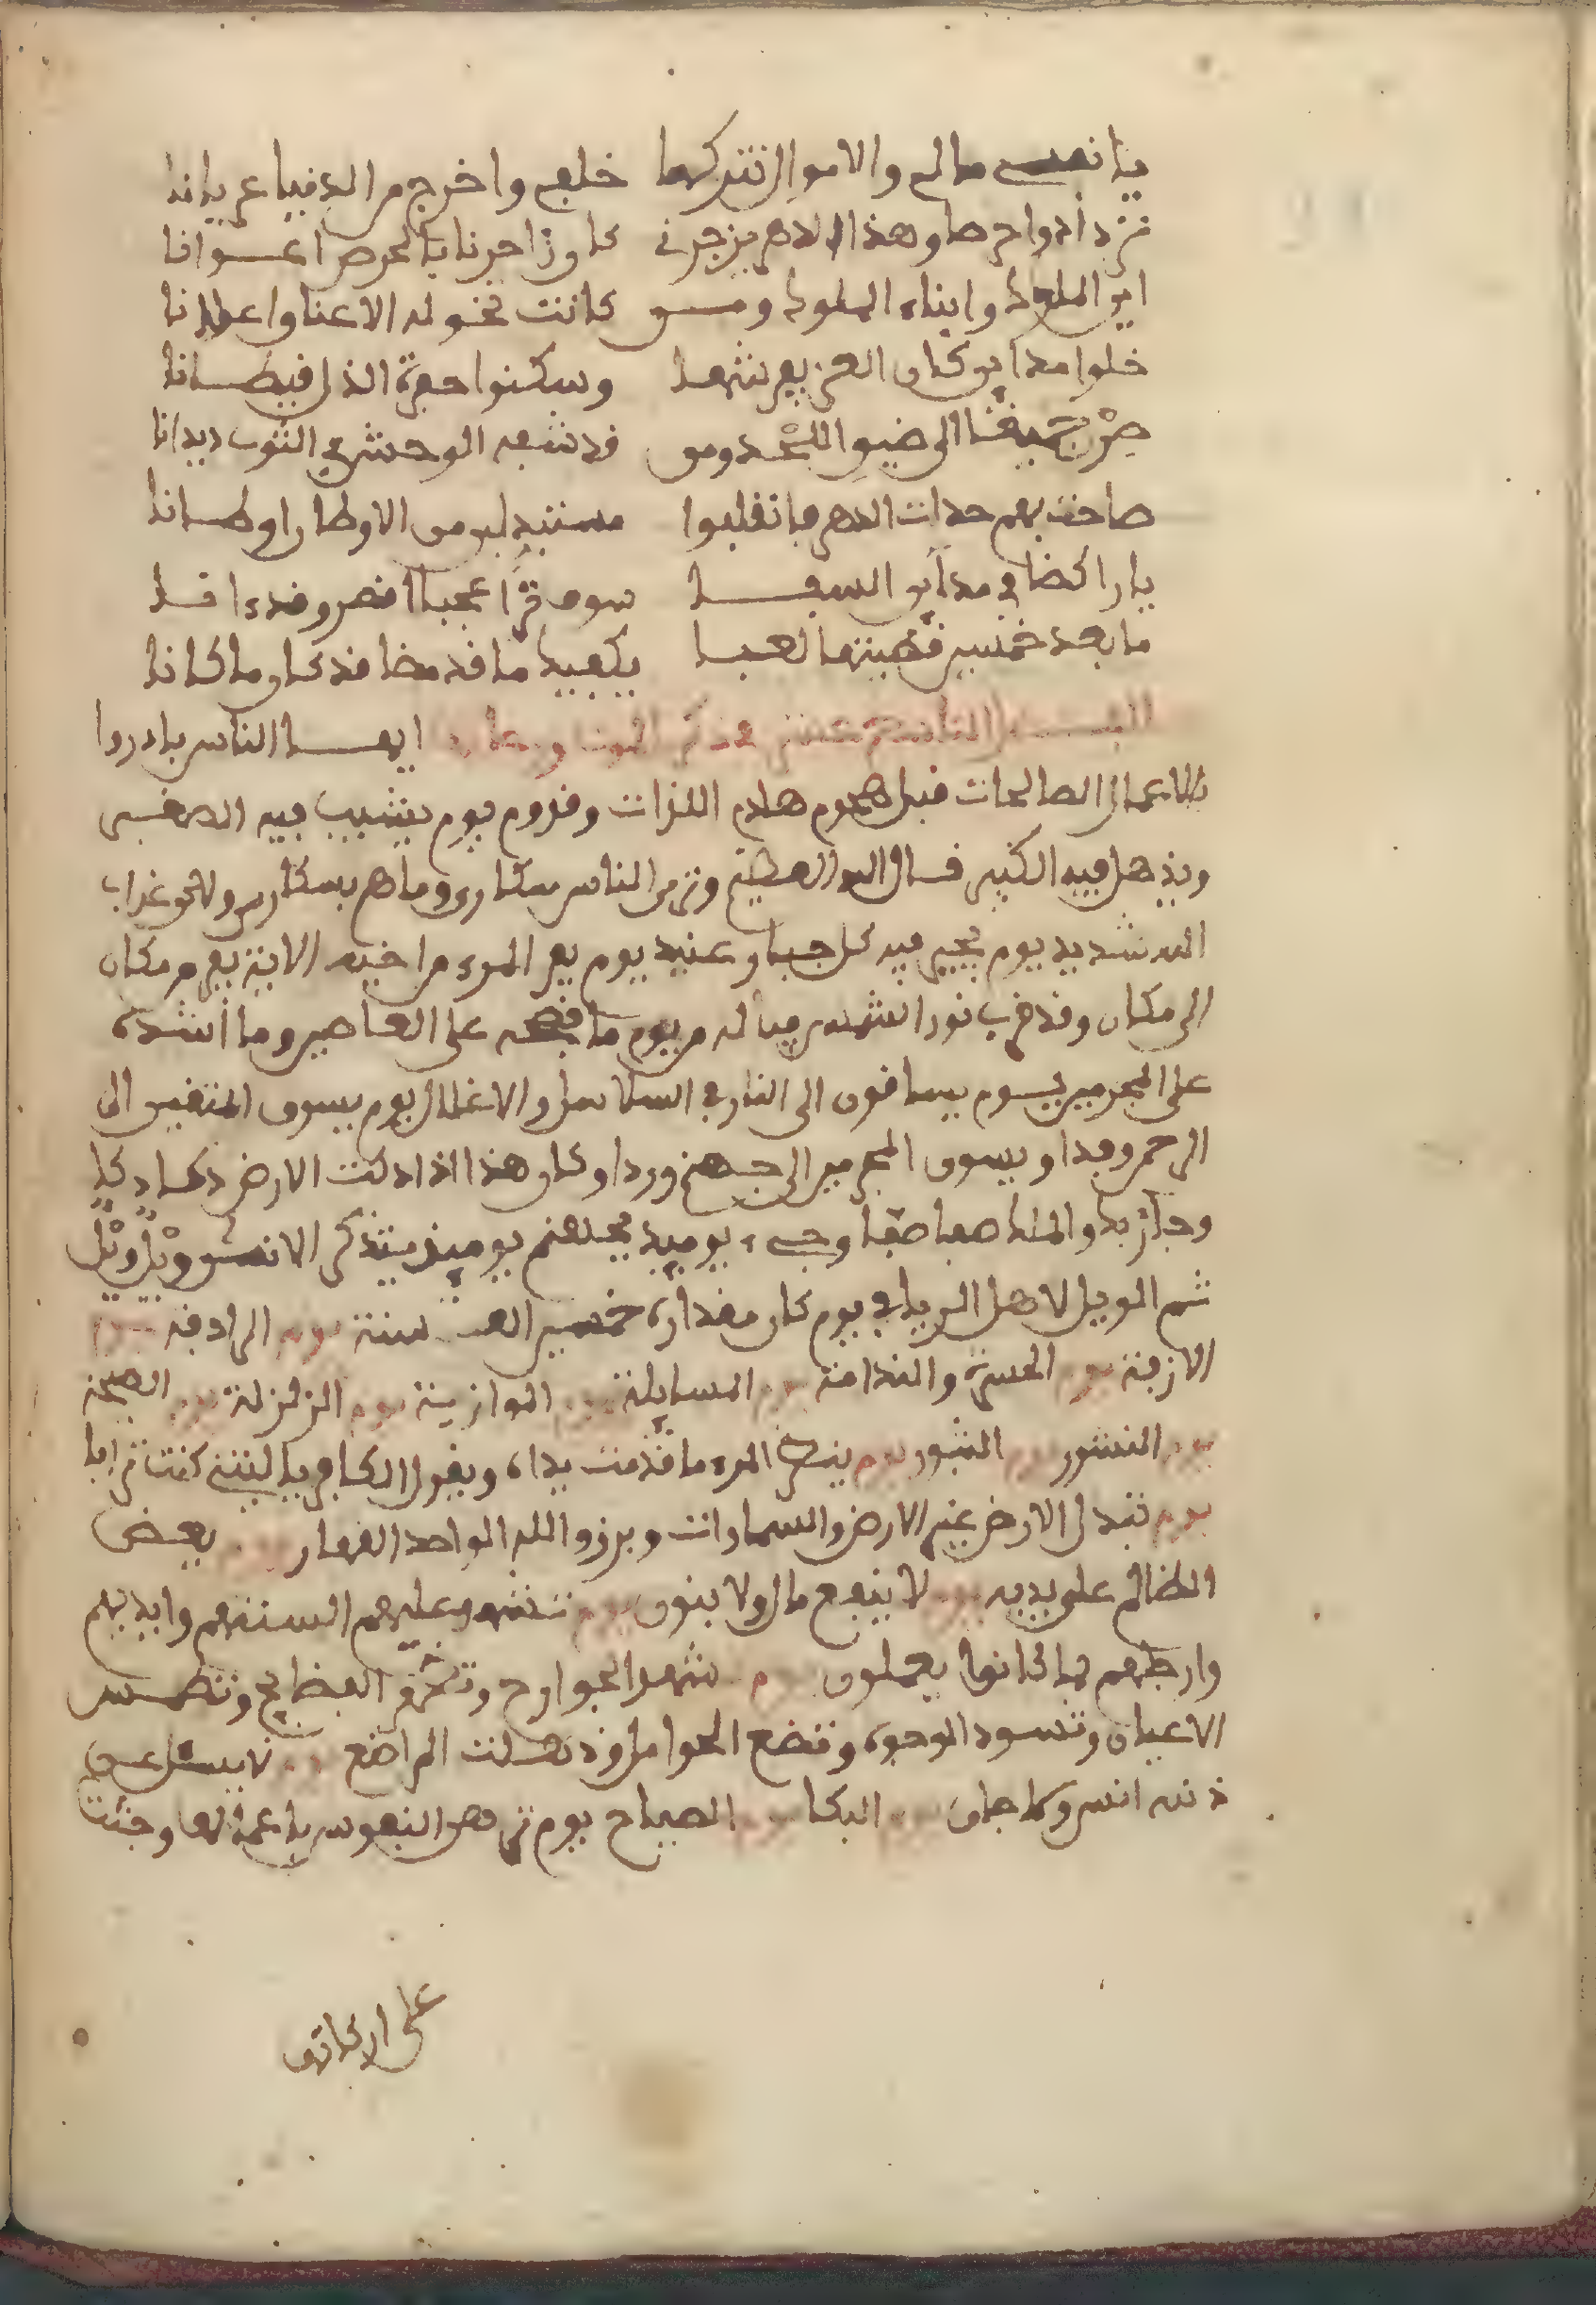 يا نفس مالي والاموال نتركها خلفي واخرج من الدنيا عريانا
نزدادوا حرصا وهذا الدهر يزجرني كان زاجرنا بالحرص اغوانا
اين الملوك وابناء الملوك ومن كانت تخر له الاعنا واعطانا
خلوا مداين كان العز يفرشها وسكنوا حفرة الذل قيطانا
الى ضيق اللحد ومن في الثوب ديدانا
صاحت بهم حداث الدهر فانقلبوا مستبدلين من الاوطان اوطانا
يا راكضا في مداين السفا سوف ترا عجبا اقصر وقد ءانا
ما بعد خمسين قضيتها لعبا يكفيك ما قد مضا قد كان ما كانا
الثامن عشر في ذكر الموت ايها الناس بادروا
بالاعمال الصالحات قبل هجوم هادم اللزات وقدوم يوم يشيب فيه الصغير
ويذهل فيه الكبير قال الله العظيم وترى الناس سكارى وما هم بسكارى ولاكن عذاب
الله شديد يوم يحير فيه كل جبار عنيد يوم يفر المرء من اخيه الاية يفر من مكان
الى مكان وقد قرب نور الشمس فياله من يوم ما افضحه على العاصين وما اشده
على المجرمين يوم يساقون الى النار في السلاسل والاغلال يوم يسوق المتقين الى
الرحمن وفدا ويسوق المجرمين الى جهنم وردا وكان هذا اذا دكت الارض دكا دكا
وجا ربك والملك صفا صفا وجيء يوميذ بجهنم يوميذ يتذكر الانس ويل ويل
ثم الويل لاهل الريا في يوم كان مقداره خمسين الف سنة يوم الرادفة يوم
الازفة يوم الحسرة والندامة يوم المسايلة يوم الموازينة يوم الزلزلة يوم الصيحة
يوم النشور يوم الثبور يوم ينظر المرء ما قدمت يداه ويقول الكافر ياليتني كنت ترابا
يوم تبدل الارض غير الارض والسماوات وبرزوا لله الواحد القهار يوم يعض
الظالم على يديه يوم لا ينفع مال ولا بنون يوم تشهد عليهم السنتهم وايديهم
وارجلهم بما كانوا يعملون يوم تشهد الجوارح الفضايح وتطمس
الاعيان وتسود الوجوه وتضع الحوامل وذهلت المراضع يوم لا يسئل عن
ذنبه انس ولا جان يوم البكا يوم الصياح يوم ترهن النفوس باعمالها وجئت
على الركاب